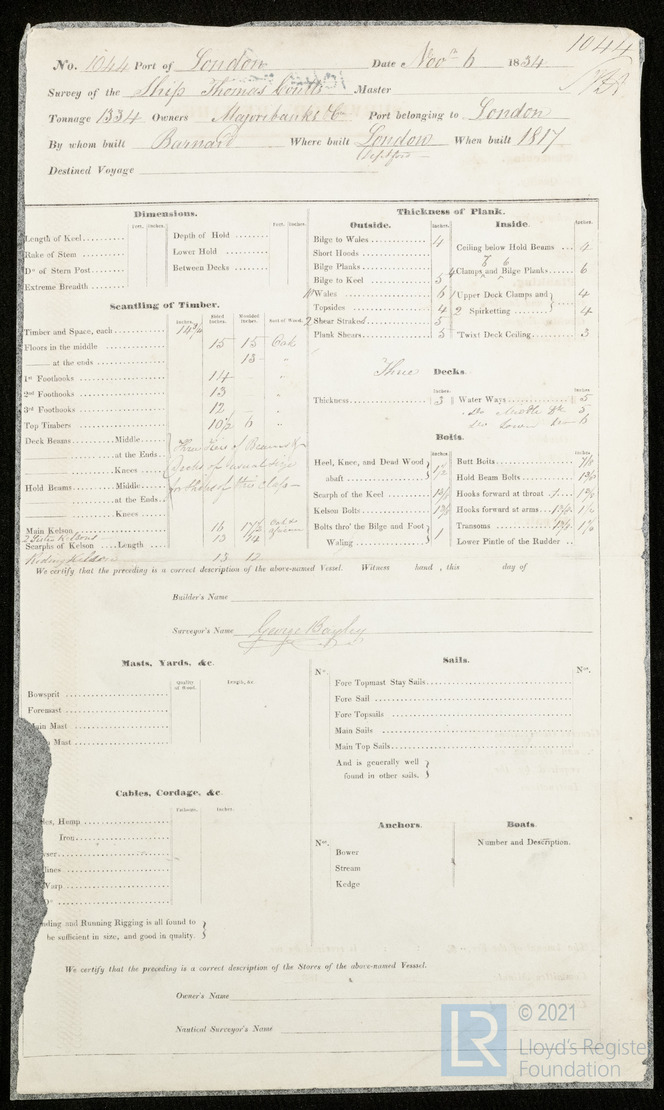 1044
No. 1044 Port of London Date Novr 6 1834
Survey of the Ship Thomas Coutts Master
Tonnage 1334 Owners Majoribanks & Co Port belonging to London
By whom built Barnard Where built London When built 1817
Deptford
Destined Voyage
Dimensions.
Feet. Inches. Feet. Inches.
Length of Keel
Rake of Stem
Do of Stern Post
Extreme Breadth
Depth of Hold
Lower Hold
Between Decks
Scantling of Timber.
Inches. Sided Inches. Moulded Inches. Sort of Wood.
Timber and Space, each
Floors in the middle 15 15 Oak
at the ends 13 "
1st Foothooks 14 "
2nd Foothooks 13 "
3rd Foothooks 12 "
Top Timbers 10½ 6 "
Deck Beams Middle
at the Ends
Knees
Hold Beams Middle
at the Ends
Knees
Three Tiers of Beams &
Decks of usual size
for Ships of this Class
Main Kelson 16
2 Sister Kelsons 13
Scarphs of Kelson Length
13 12
Thickness of Plank.
Outside. Inches.
Bilge to Wales 4
Short Hoods
Bilge Planks
Bilge to Keel 5
Wales 6
Topsides 4
2 Shear Straked 5
Plank Shears 5
Inside. Inches.
Ceiling below Hold Beams 4
Clamps and Bilge Planks 6
Upper Deck Clamps and 4
2 Spirketting 4
Twixt Deck Ceiling 3
Three Decks.
Inches. Inches.
Thickness 3 Water Ways 5
do Middle Dk 5
do Lower 6
Bolts.
Inches. Inches.
Heel, Knee, and Dead Wood
abaft
Scarph of the Keel
Kelson Bolts
Bolts thro' the Bilge and Foot
Waling 1
Butt Bolts 7/8
Hold Beam Bolts
Hooks forward at throat
Hooks forward at arms
Transoms
Lower Pintle of the Rudder
We certify that the preceding is a correct description of the above-named Vessel. Witness hand, this day of
Builder's Name
Surveyor's Name George Bayley
Masts, Yards, &c.
Quality of Wood. Length, &c
Bowsprit
Foremast
Main Mast
Mast
Sails.
No. Nos.
Fore Topmast Stay Sails
Fore Sail
Fore Topsails
Main Sails
Main Top Sails
And is generally well
found in other sails.
Cables, Cordage, &c.
Fathoms. Inches.
les, Hemp
Iron
wser
lines
Warp
Do
nding and Running Rigging is all found to
be sufficient in size, and good in quality.
Anchors.
Nos.
Bower
Stream
Kedge
Boats.
Number and Description.
We certify that the preceding is a correct description of the Stores of the above-named Vessel.
Owner's Name
Nautical Surveyor's Name
LR © 2021
Lloyd's Register
Foundation